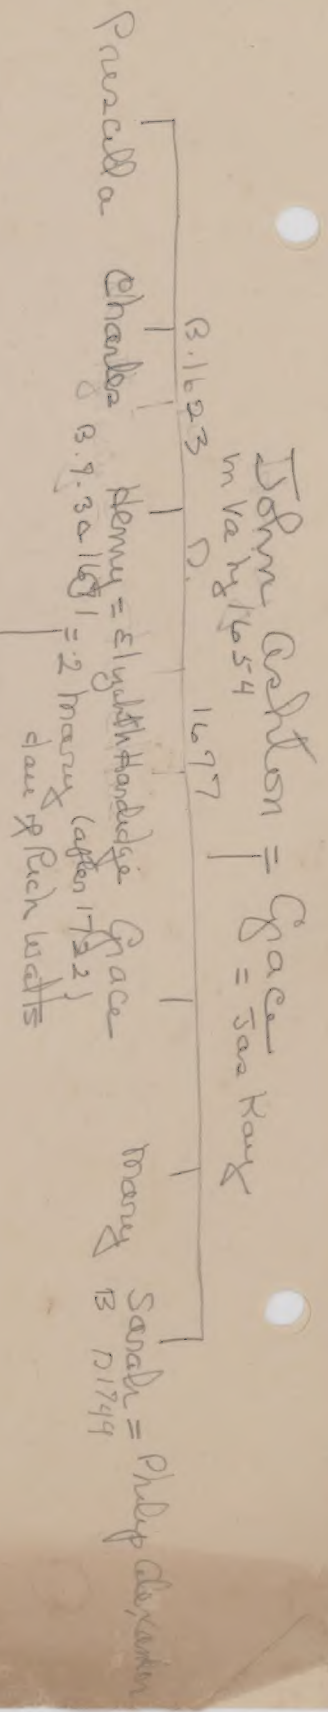 John Ashton = Grace
in Va by 1654 = Jas Kay
B. 1623 D. 1677
Prescilla Charles Henry = Elyzabth Hardidge Grace Mary Sarah = Philip Alexander
B. 7. 30 1671 = 2 Mary (after 1722) B D 1749
dau of Rich Watts